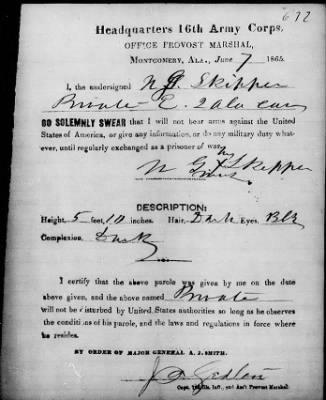 672
Headquarters 16th Army Corps,
OFFICE PROVOST MARSHAL,
MONTGOMERY, ALA., June 7 1865.
I, the undersigned N G Skipper
Private E. 2 Ala Cav
DO SOLEMNLY SWEAR that I will not bear arms against the United
States of America, or give any information, or do any military duty what-
ever, until regularly exchanged as a prisoner of war.
his
N G X Skipper
mark
DESCRIPTION:
Height, 5 feet, 10 inches. Hair, Dark Eyes, Blk
Complexion, Dark
I certify that the above parole was given by me on the date
above given, and the above named Private
will not be disturbed by United States authorities so long as he observes
the conditions of his parole, and the laws and regulations in force where
he resides.
BY ORDER OF MAJOR GENERAL A. J. SMITH.
Capt. Ills. Inft., and Ass't Provost Marshal.